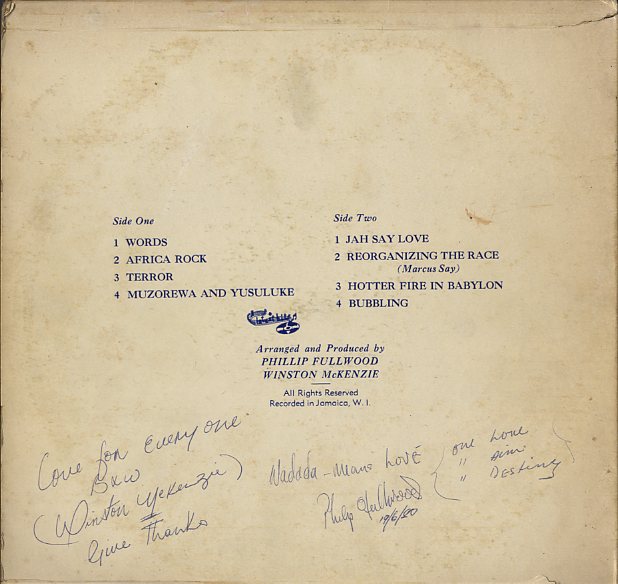 Side One
1 WORDS
2 AFRICA ROCK
3 TERROR
4 MUZOREWA AND YUSULUKE
Side Two
1 JAH SAY LOVE
2 REORGANIZING THE RACE
(Marcus Say)
3 HOTTER FIRE IN BABYLON
4 BUBBLING
Arranged and Produced by
PHILLIP FULLWOOD
WINSTON McKENZIE
All Rights Reserved
Recorded in Jamaica, W. I.
Love for Everyone
(Winston McKenzie)
Give Thanks
Wadada - Means LOVE
Philip Fullwood
19/6/80
{ one Love
" Aim
" DESTINY }